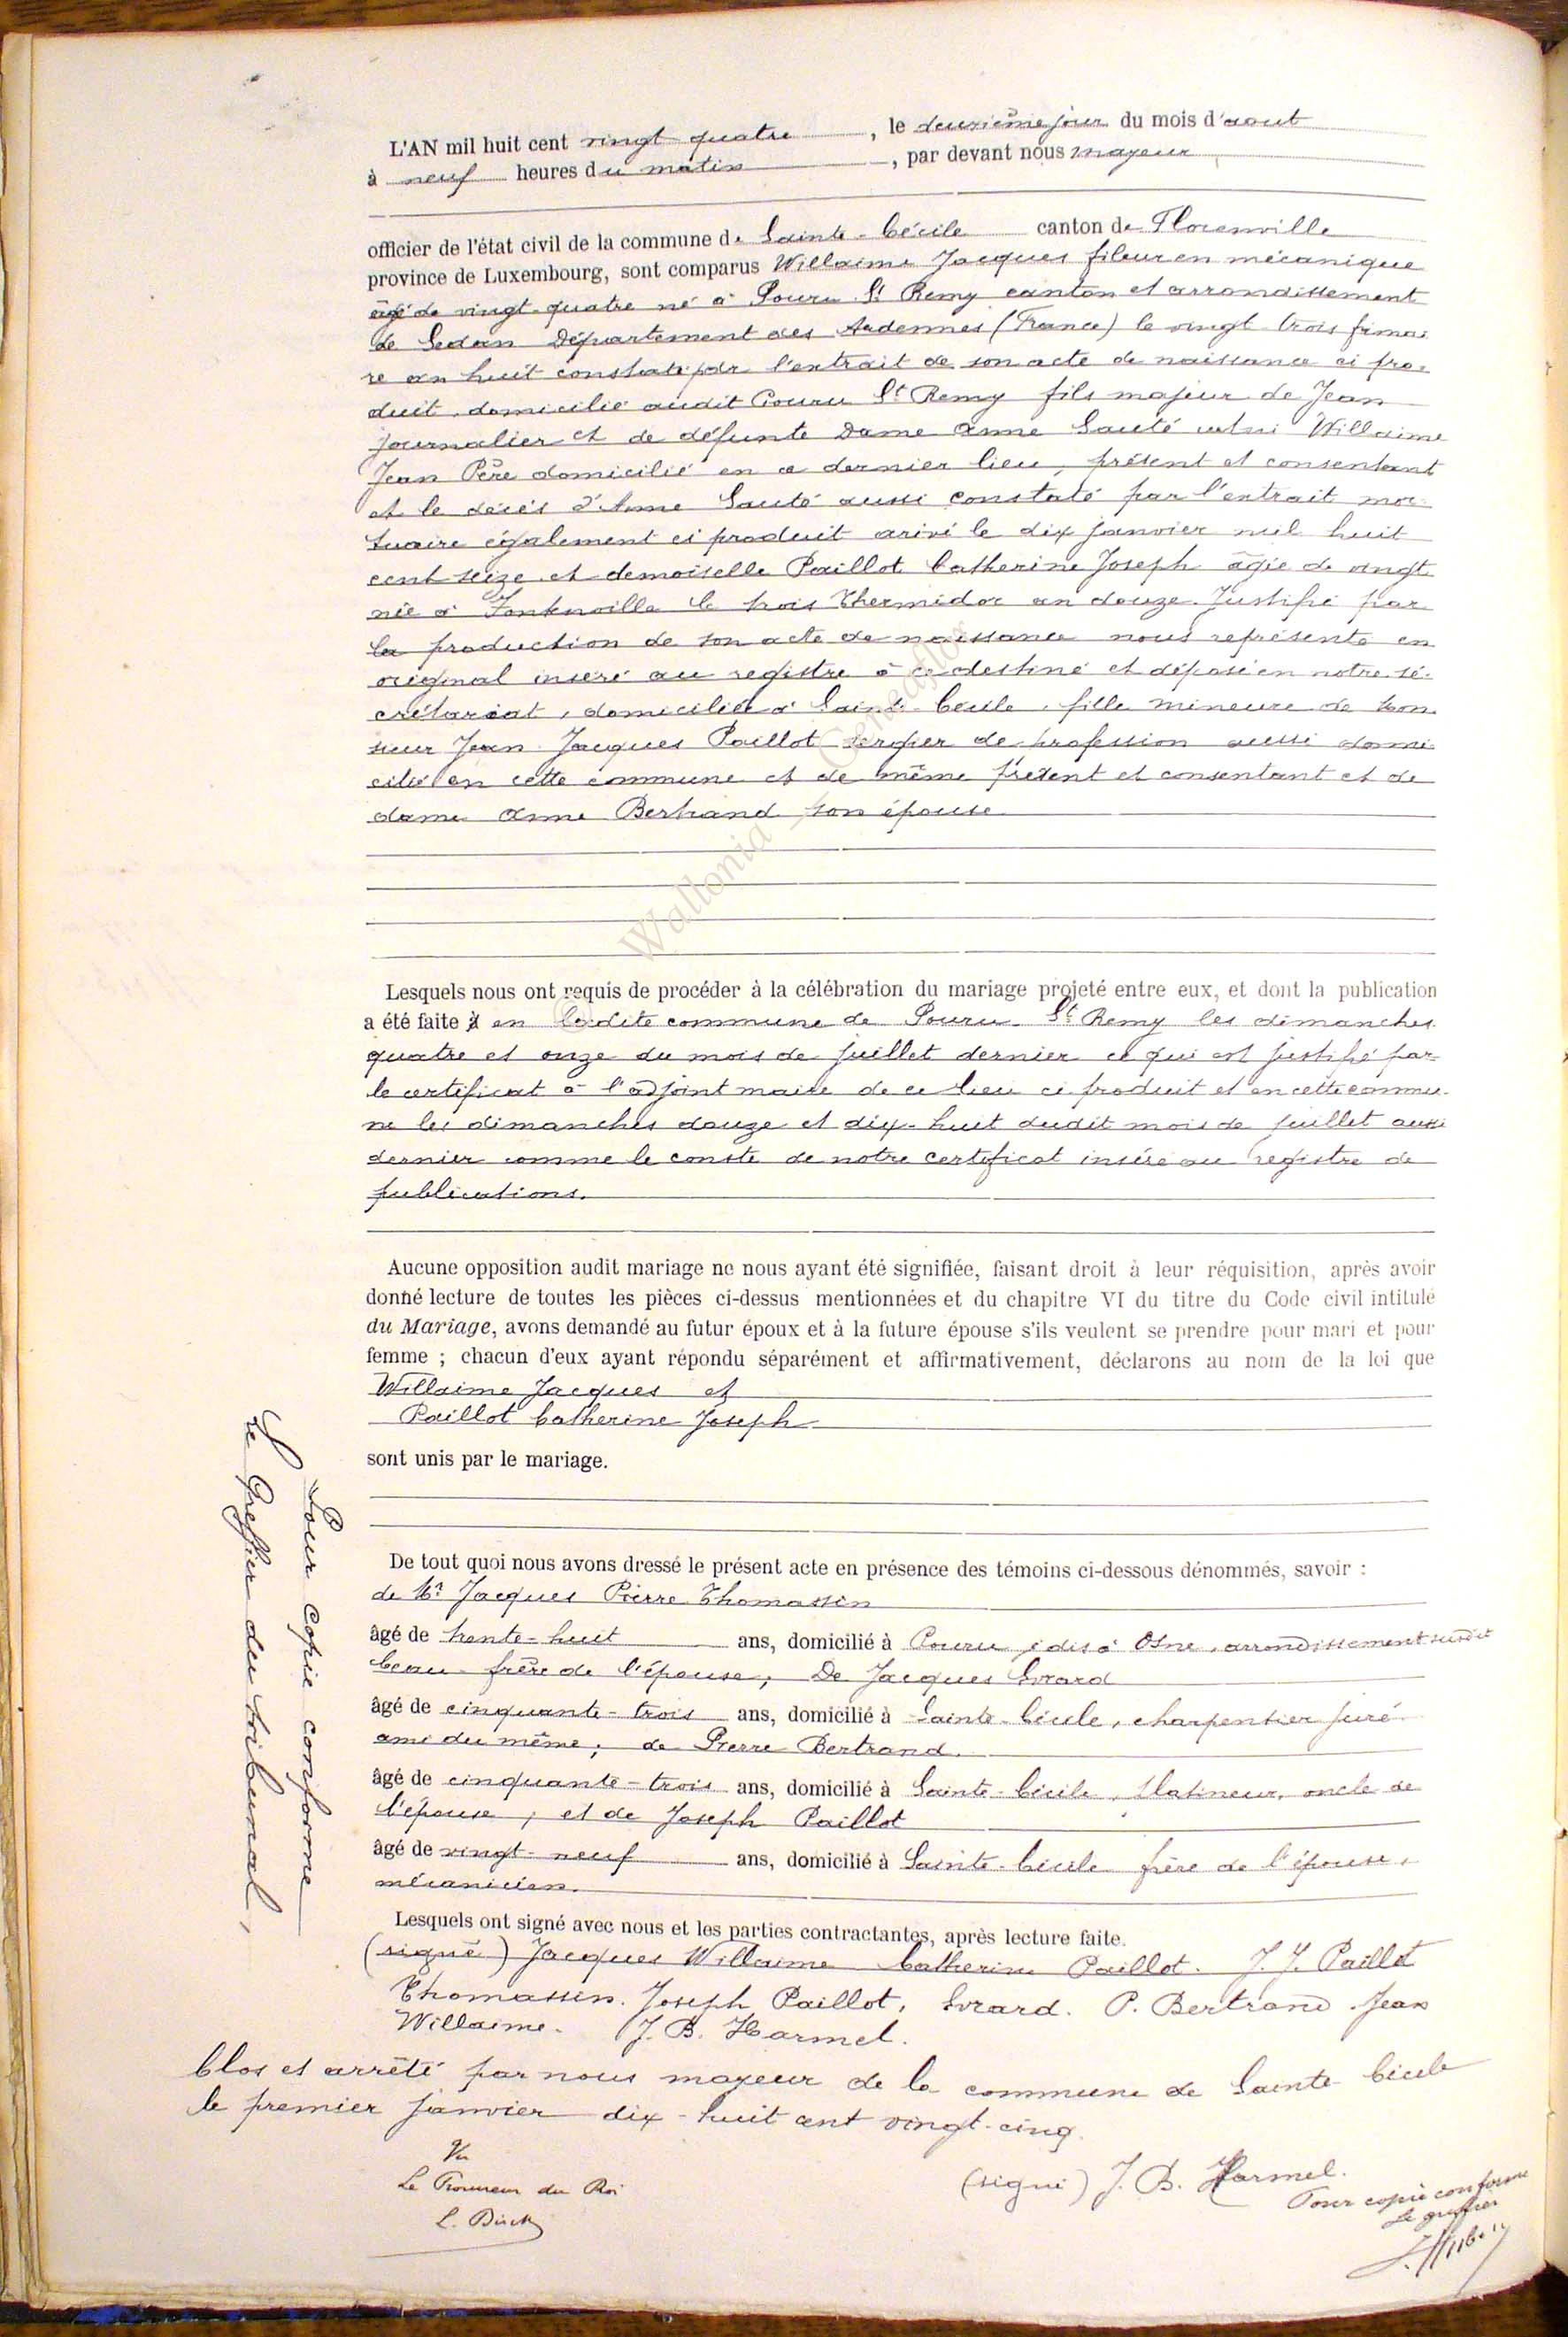 L'AN mil huit cent vingt quatre, le deuxième jour du mois d'aout
à neuf heures du matin, par devant nous mayeur
officier de l'état civil de la commune de Sainte-Cécile canton de Florenville
province de Luxembourg, sont comparus Willaime Jacques fileur en mécanique
âgé de vingt-quatre né à Pouru St Remy canton et arrondissement
de Sedan Département des Ardennes (France) le vingt-trois frimai
re an huit constaté par l'extrait de son acte de naissance ci pro-
duit, domicilié audit Pouru St Remy fils majeur de Jean
journalier et de défunte Dame Anne Sauté Willaime
Jean Père domicilié en ce dernier lieu, présent et consentant
et le décès d'Anne Sauté aussi constaté par l'extrait mor-
tuaire également ci produit arivé le dix janvier mil huit
cent seize et demoiselle Paillot Catherine Joseph âgée de vingt
née à le trois Thermidor an douze. Justifié par
la production de son acte de naissance nous représenté en
original inseré au registre à ce destiné et déposé en notre sé-
crétariat, domiciliée à Sainte-Cécile, fille mineure de Mon
sieur Jean Jacques Paillot de profession aussi domi
cilié en cette commune et de même présent et consentant et de
dame Anne Bertrand son épouse
© Wallonia - Geneaflor
Lesquels nous ont requis de procéder à la célébration du mariage projeté entre eux, et dont la publication
a été faite à en ladite commune de Pouru-St Remy les dimanches
quatre et onze du mois de juillet dernier ce qui est justifié par
le certificat à l'adjoint maire de ce lieu ci produit et en cette commu-
ne les dimanches douze et dix-huit dudit mois de juillet aussi
dernier comme le conste de notre certificat inséré au registre de
publications.
Aucune opposition audit mariage ne nous ayant été signifiée, faisant droit à leur réquisition, après avoir
donné lecture de toutes les pièces ci-dessus mentionnées et du chapitre VI du titre du Code civil intitulé
du Mariage, avons demandé au futur époux et à la future épouse s'ils veulent se prendre pour mari et pour
femme ; chacun d'eux ayant répondu séparément et affirmativement, déclarons au nom de la loi que
Willaime Jacques et
Paillot Catherine Joseph
sont unis par le mariage.
De tout quoi nous avons dressé le présent acte en présence des témoins ci-dessous dénommés, savoir :
de Mr Jacques Pierre Thomassin
âgé de trente-huit ans, domicilié à Pouru Osne, arrondissement susdit
beau-frère de l'épouse; De Jacques Evrard
âgé de cinquante-trois ans, domicilié à Sainte-Cécile, charpentier juré
ami du même; de Pierre Bertrand.
âgé de cinquante-trois ans, domicilié à Sainte-Cécile, Platineur, oncle de
l'épouse; et de Joseph Paillot
âgé de vingt-neuf ans, domicilié à Sainte-Cécile frère de l'épouse,
mécanicien.
Lesquels ont signé avec nous et les parties contractantes, après lecture faite.
(signé) Jacques Willaime Catherine Paillot. J. J. Paillot
Thomassin. Joseph Paillot, Evrard. P. Bertrand Jean
Willaime. J. B. Harmel.
Clos et arrêté par nous mayeur de la commune de Sainte Cécile
le premier janvier dix-huit cent vingt-cinq.
(signé) J. B. Harmel.
Vu
Le Procureur du Roi
Pour copie conforme
Le greffier
Pour copie conforme
Le Greffier du tribunal,